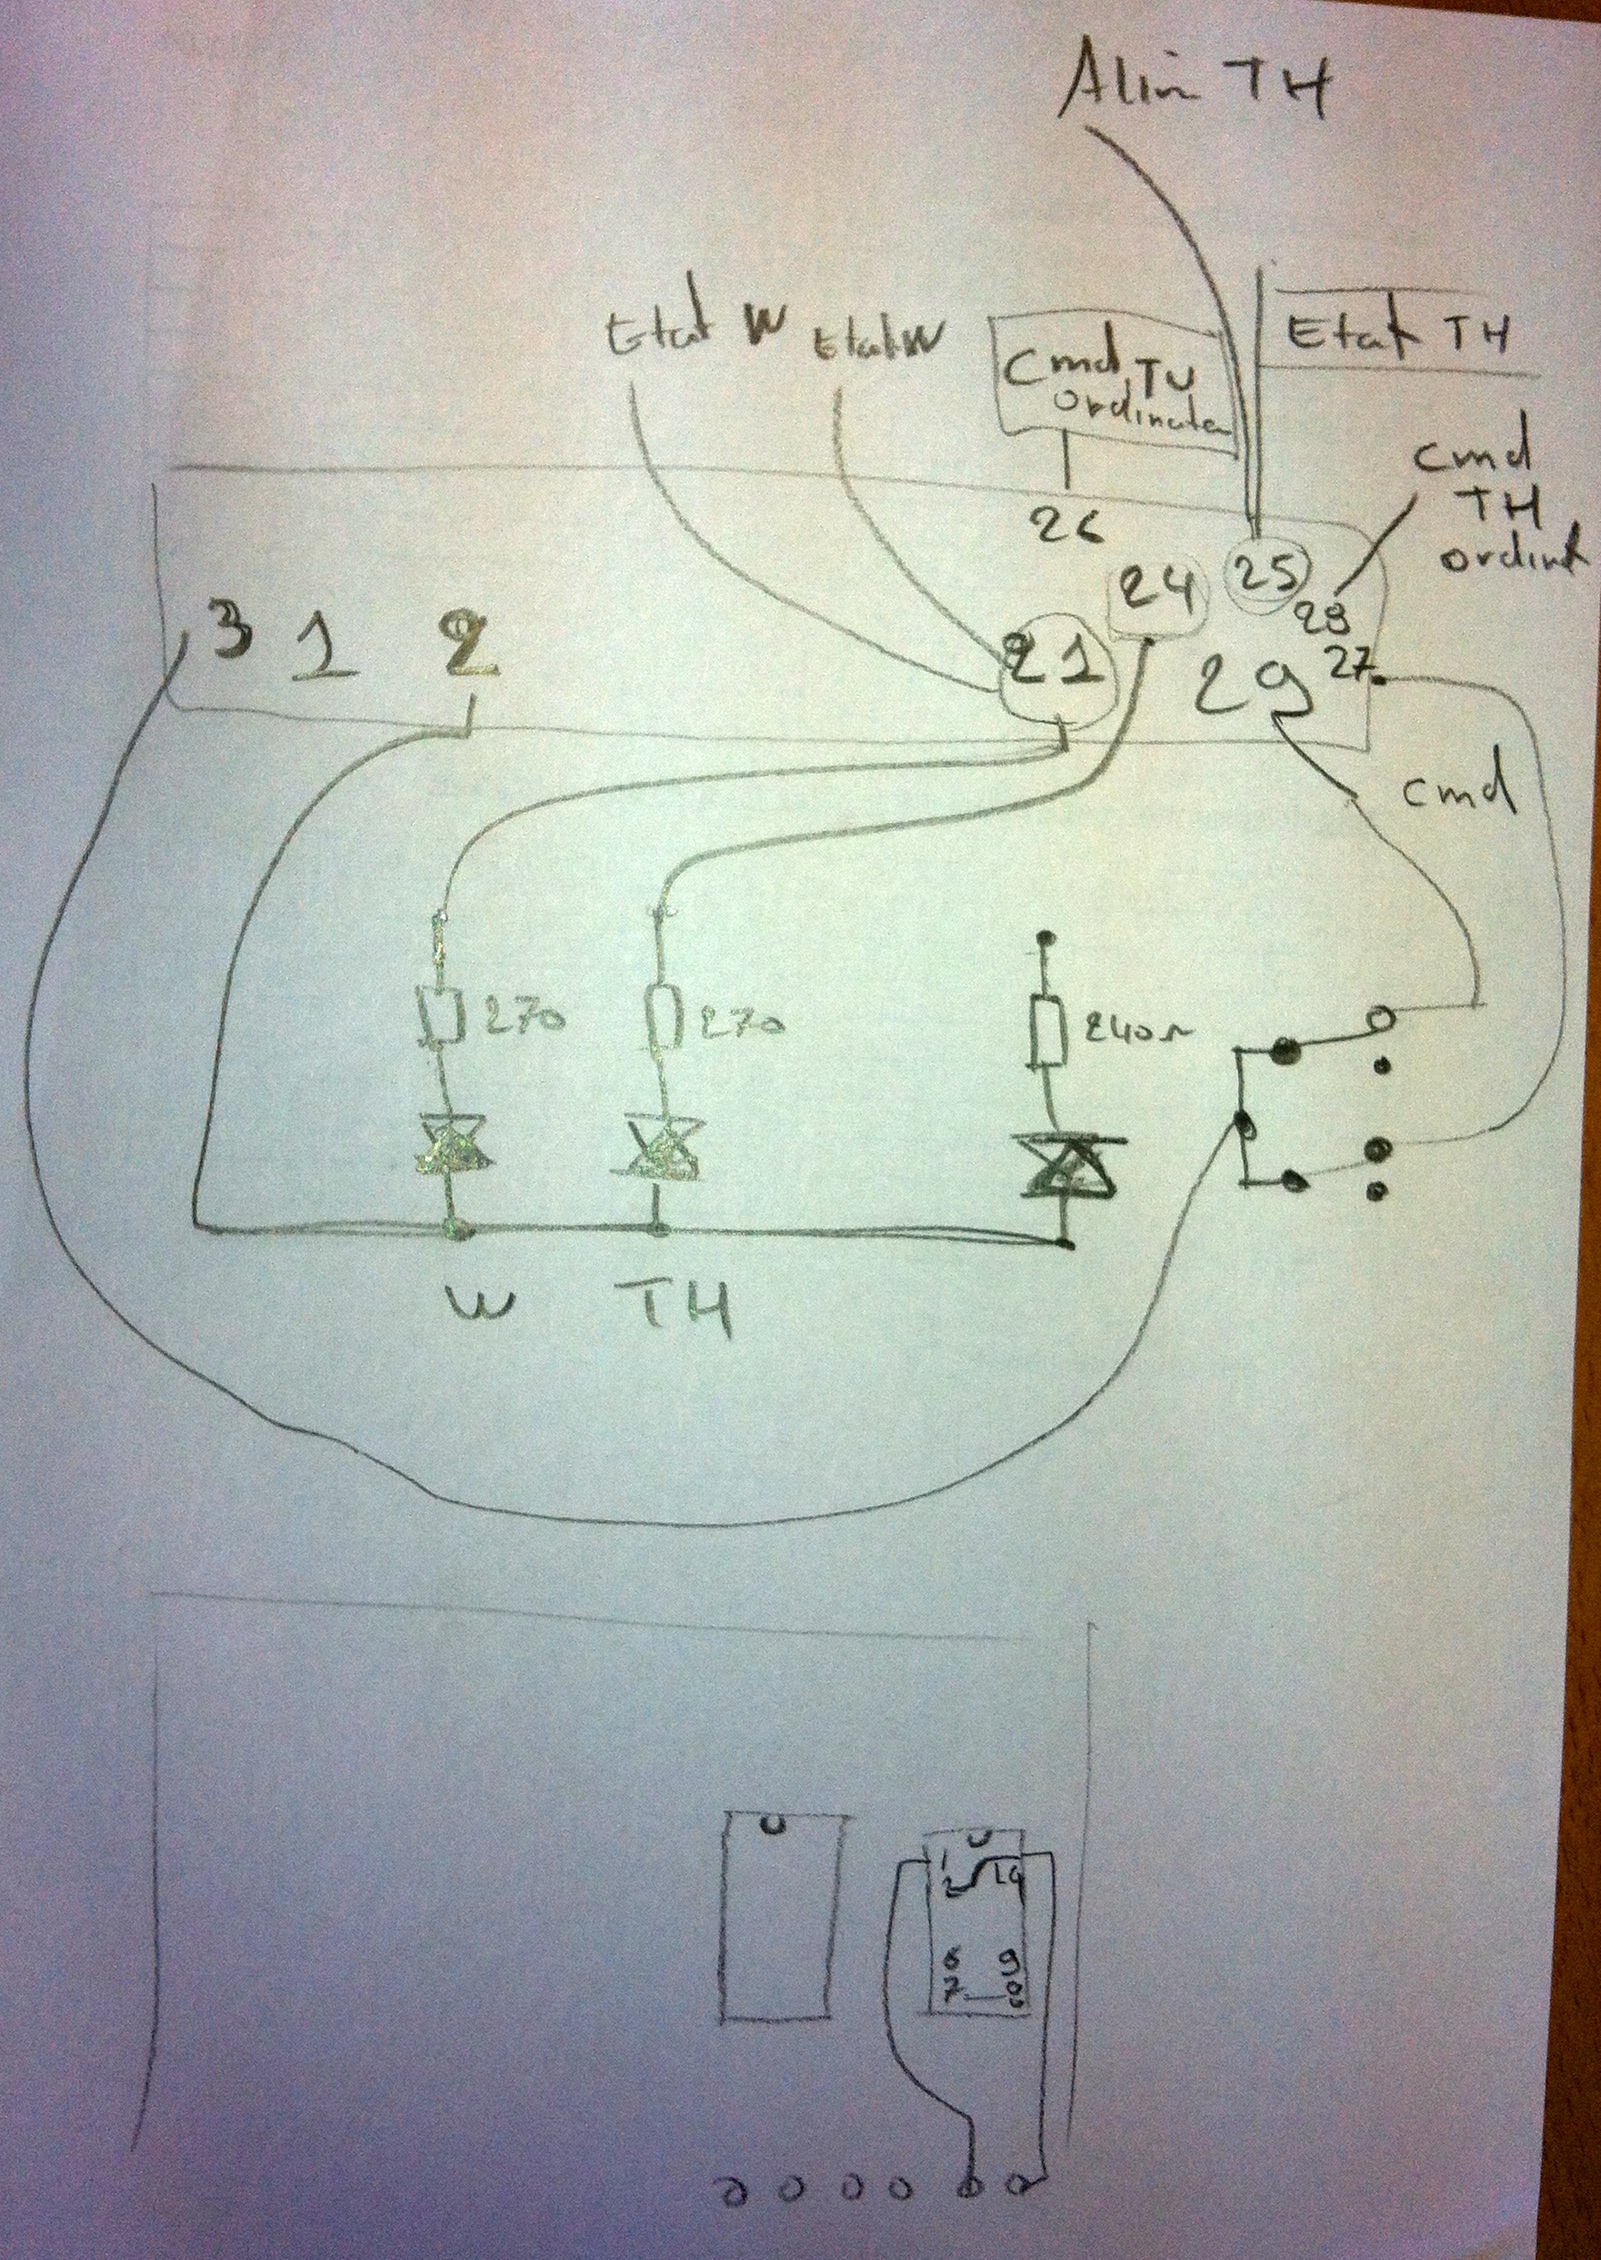 Alim TH
Etat W
Etat W
Cmd TU
Ordinate
Etat TH
cmd
TH
ordinat
26
24
25
28
27
3 1 2
21
29
cmd
270
270
240Ω
W
TH
1
2
14
6 9
7 8